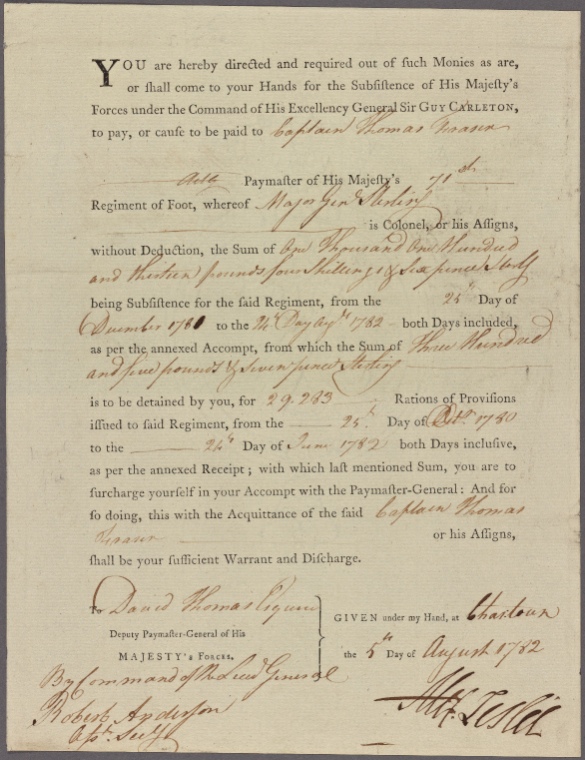 YOU are hereby directed and required out of ſuch Monies as are,
or ſhall come to your Hands for the Subſiſtence of His Majeſty's
Forces under the Command of His Excellency General Sir GUY CARLETON,
to pay, or cauſe to be paid to Captain Thomas Fraser
Paymaſter of His Majeſty's 71st
Regiment of Foot, whereof Major Genl Sterling
is Colonel, or his Aſſigns,
without Deduction, the Sum of One Thousand One Hundred
and thirteen pounds four Shillings & Six pence Sterlg
being Subſiſtence for the ſaid Regiment, from the 25th Day of
December 1781 to the 24th Day Augst 1782 both Days included,
as per the annexed Accompt, from which the Sum of Three Hundred
and five pounds & Seven pence Sterling
is to be detained by you, for 29.283 Rations of Proviſions
iſſued to ſaid Regiment, from the 25th Day of 1780
to the 24th Day of June 1782 both Days incluſive,
as per the annexed Receipt; with which laſt mentioned Sum, you are to
ſurcharge yourſelf in your Accompt with the Paymaſter-General: And for
ſo doing, this with the Acquittance of the ſaid Captain Thomas
Fraser or his Aſſigns,
ſhall be your ſufficient Warrant and Diſcharge.
To David Thomas Esquire
Deputy Paymaſter-General of His
MAJESTY's FORCES.
GIVEN under my Hand, at Charstown
the 5th Day of August 1782
By Command of the Lieut General
Robert Anderson
Asst. Secty
Alex Leslie